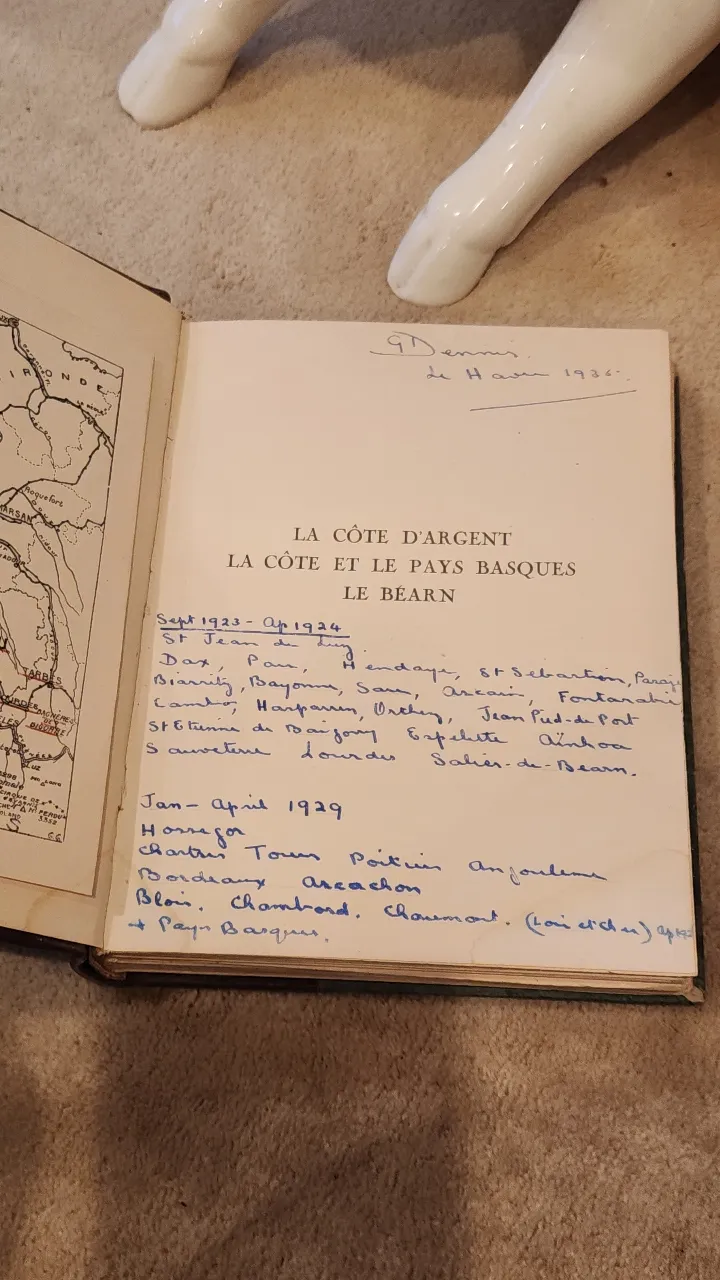 ONDE
Roquefort
MARSAN
TARBES
BAGNÈRES
DE
BIGORRE
LUZ
CIRQUE DE
S
GDennis.
Le Havre 1936.
LA CÔTE D'ARGENT
LA CÔTE ET LE PAYS BASQUES
LE BÉARN
Sept 1923 - Ap 1924
St Jean de Luz
Dax, Pau, Hendaye, St Sebastien,
Biarritz, Bayonne, Sare, Ascain, Fontarabie
Cambo, Hasparren, Orthez, Jean Pied-de-Port
St Etienne de Baigorry Espelette Aïnhoa
Sauveterre Lourdes Saliès-de-Bearn.
Jan - April 1929
Hossegor
Chartres Tours Poitiers Angouleme
Bordeaux Arcachon
Blois. Chambord. Chaumont. (Loir et Cher) Ap
+ Pays Basques.